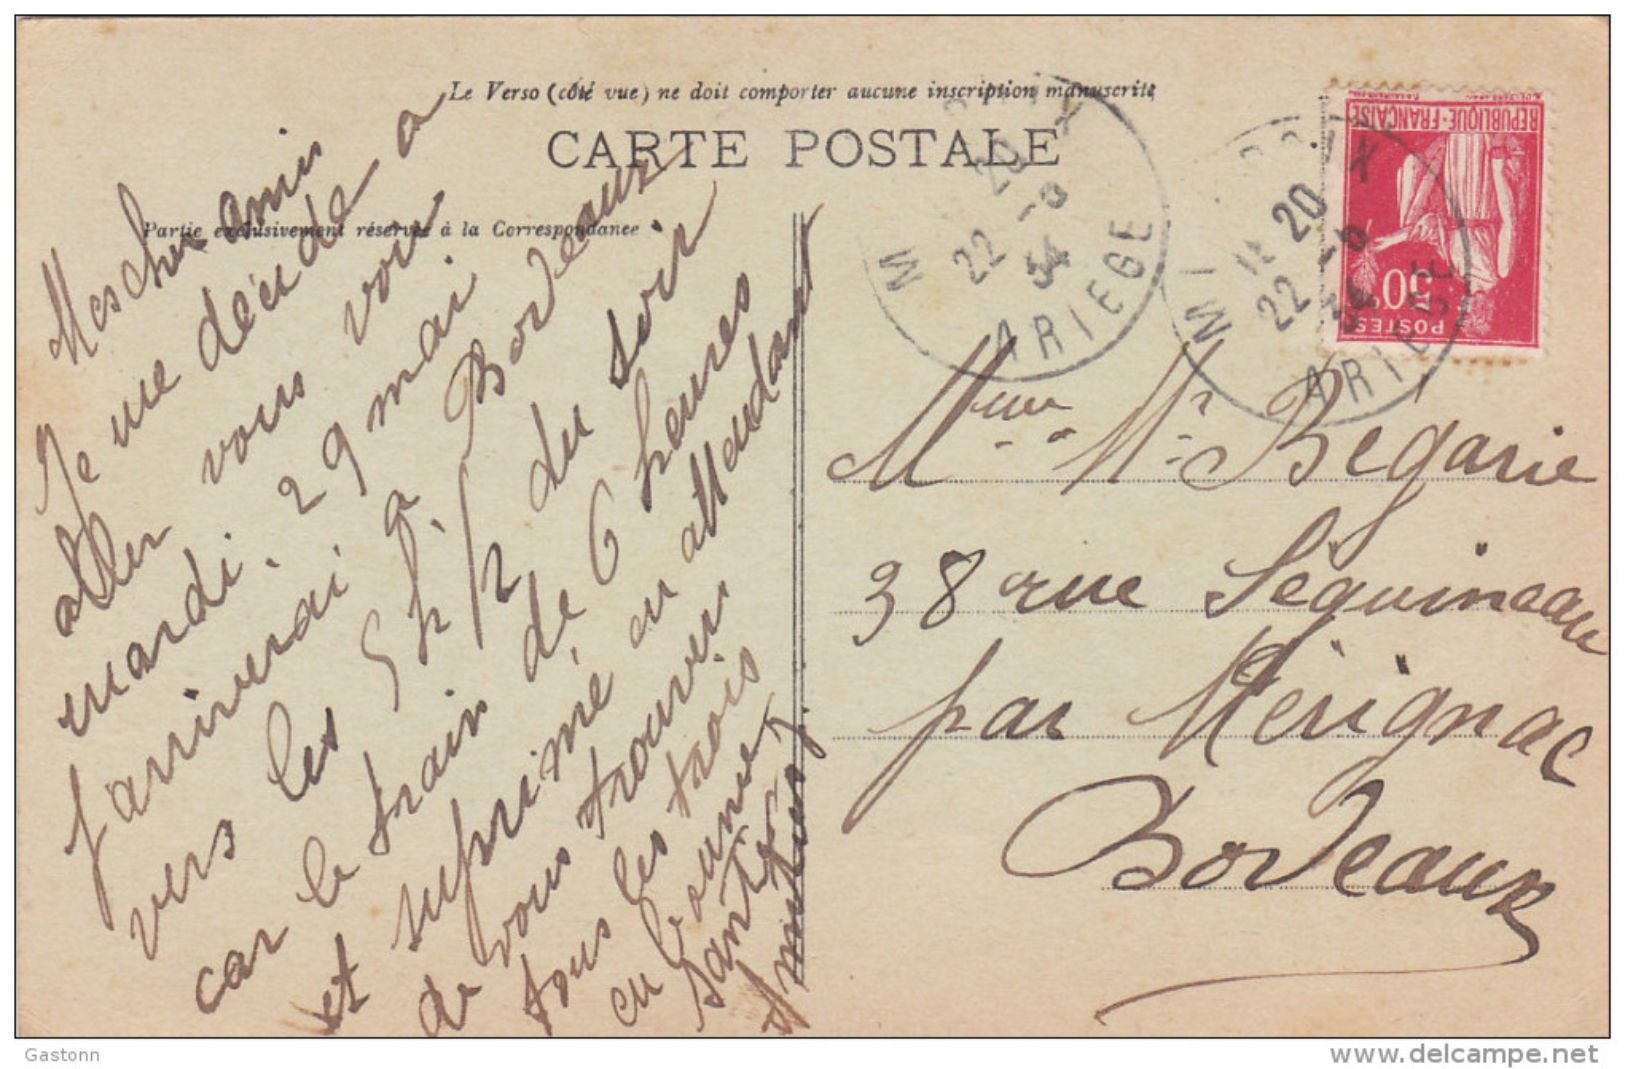 Le Verso (côté vue) ne doit comporter aucune inscription manuscrite
CARTE POSTALE
Partie exclusivement réservée à la Correspondance
Mes cher amis
Je me décide a
aller vous voir
mardi. 29 mai
j'arriverai a Bordeaux
vers les 5 h 1/2 du soir
car le train de 6 heures
et suprimé en attendant
de vous trouver
tous les trois
en bonne
santé
REPUBLIQUE-FRANÇAISE
50c
POSTES
20
22 -5
34
ARIEGE
MI
20
22 -5
34
ARIEGE
Mme Mr Bégarie
38 rue Séguineau
par Mérignac
Bordeaux
Gastonn
www.delcampe.net